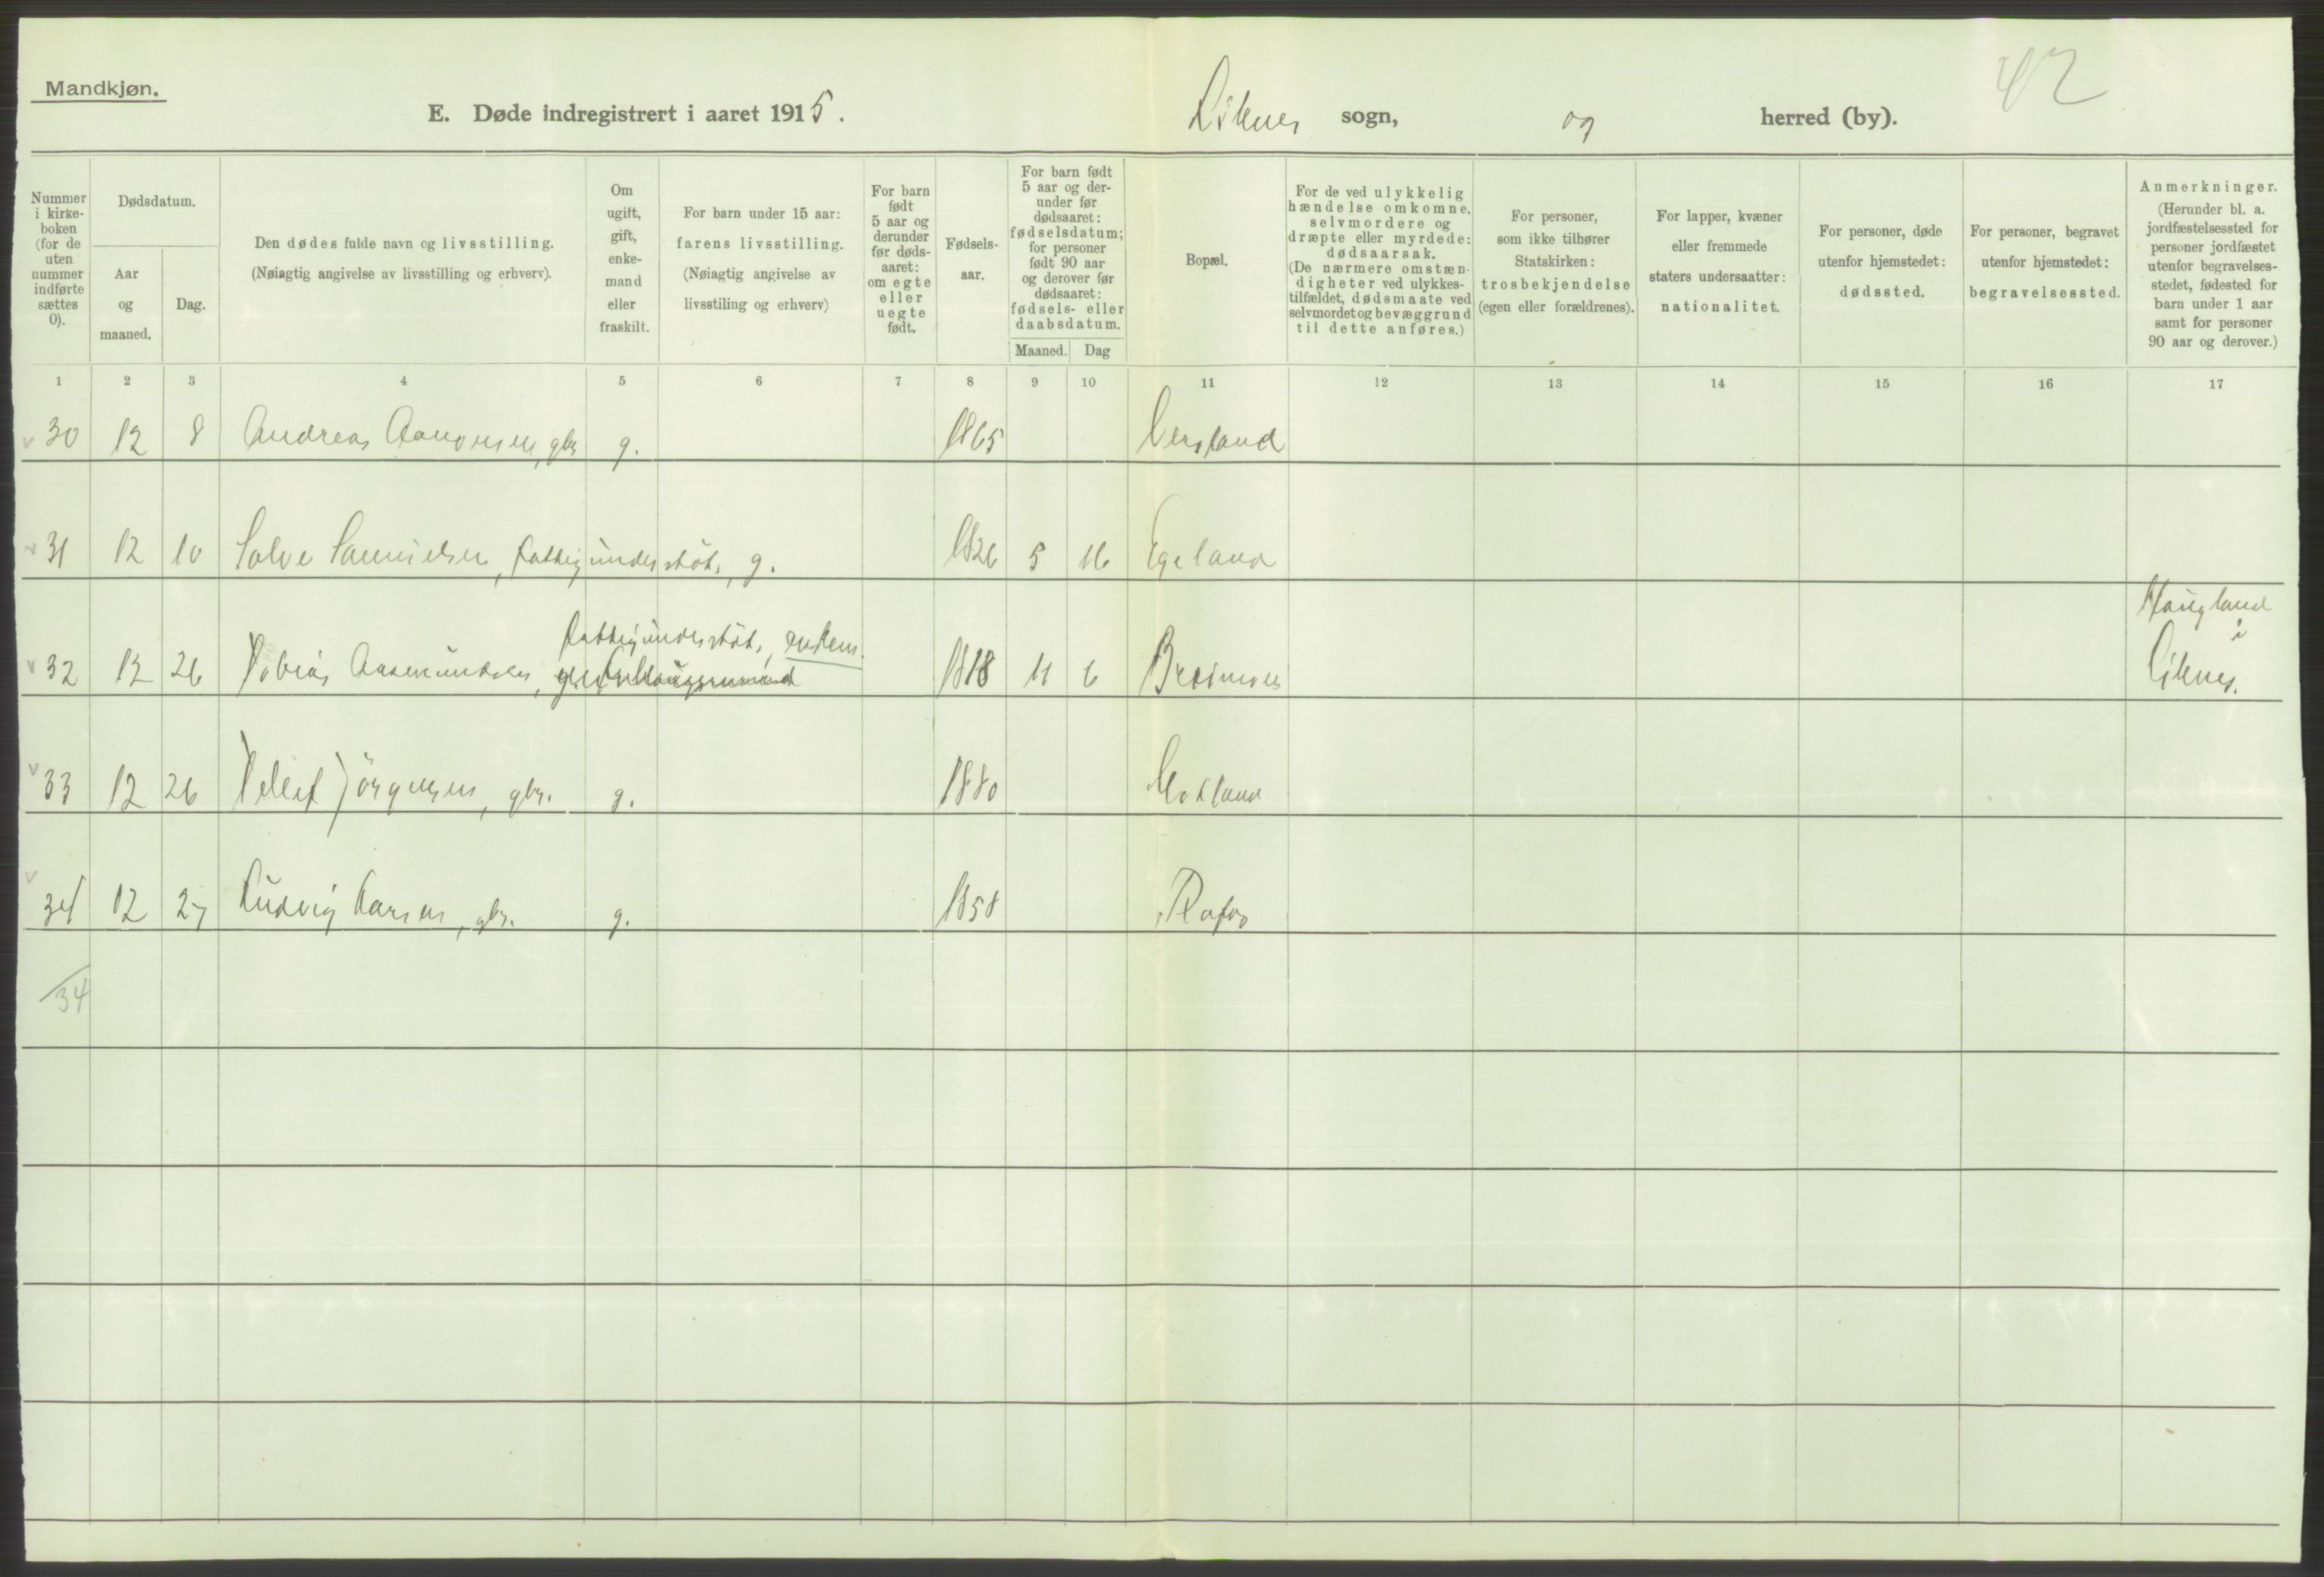 Mandkjøn.
42
E. Døde indregistrert i aaret 1915. Liknes sogn, og herred (by).
Nummer i kirke-boken (for de uten nummer indførte sættes 0).
Dødsdatum.
Aar og maaned.
Dag.
Den dødes fulde navn og livsstilling.
(Nøiagtig angivelse av livsstilling og erhverv).
Om ugift, gift, enke-mand eller fraskilt.
For barn under 15 aar: farens livsstilling.
(Nøiagtig angivelse av livsstiling og erhverv)
For barn født 5 aar og derunder før døds-aaret: om egte eller uegte født.
Fødsels-aar.
For barn født 5 aar og der-under før dødsaaret: fødselsdatum; for personer født 90 aar og derover før dødsaaret: fødsels- eller daabsdatum.
Maaned. Dag
Bopæl.
For de ved ulykkelig hændelse omkomne, selvmordere og dræpte eller myrdede: dødsaarsak.
(De nærmere omstæn-digheter ved ulykkes-tilfældet, dødsmaate ved selvmordet og bevæggrund til dette anføres.)
For personer, som ikke tilhører Statskirken: trosbekjendelse (egen eller forældrenes).
For lapper, kvæner eller fremmede staters undersaatter: nationalitet.
For personer, døde utenfor hjemstedet: dødssted.
For personer, begravet utenfor hjemstedet: begravelsessted.
Anmerkninger.
(Herunder bl. a. jordfæstelsessted for personer jordfæstet utenfor begravelses-stedet, fødested for barn under 1 aar samt for personer 90 aar og derover.)
1 2 3 4 5 6 7 8 9 10 11 12 13 14 15 16 17
v 30 12 8 Andreas Aanonsen, gbr g. 1865
v 31 12 10 Salve Samuelsen, fattigunderstöt., g. 1826 5 16 Egeland
fattigunderstöt., enkem.
v 32 12 26 Tobias Aasmundsen, 1818 11 6 Haugland i Liknes.
v 33 12 26 Detlef Jörgensen, gbr. g. 1880
v 34 12 27 Ludvig Larsen, gbr. g. 1858 Rafos
34